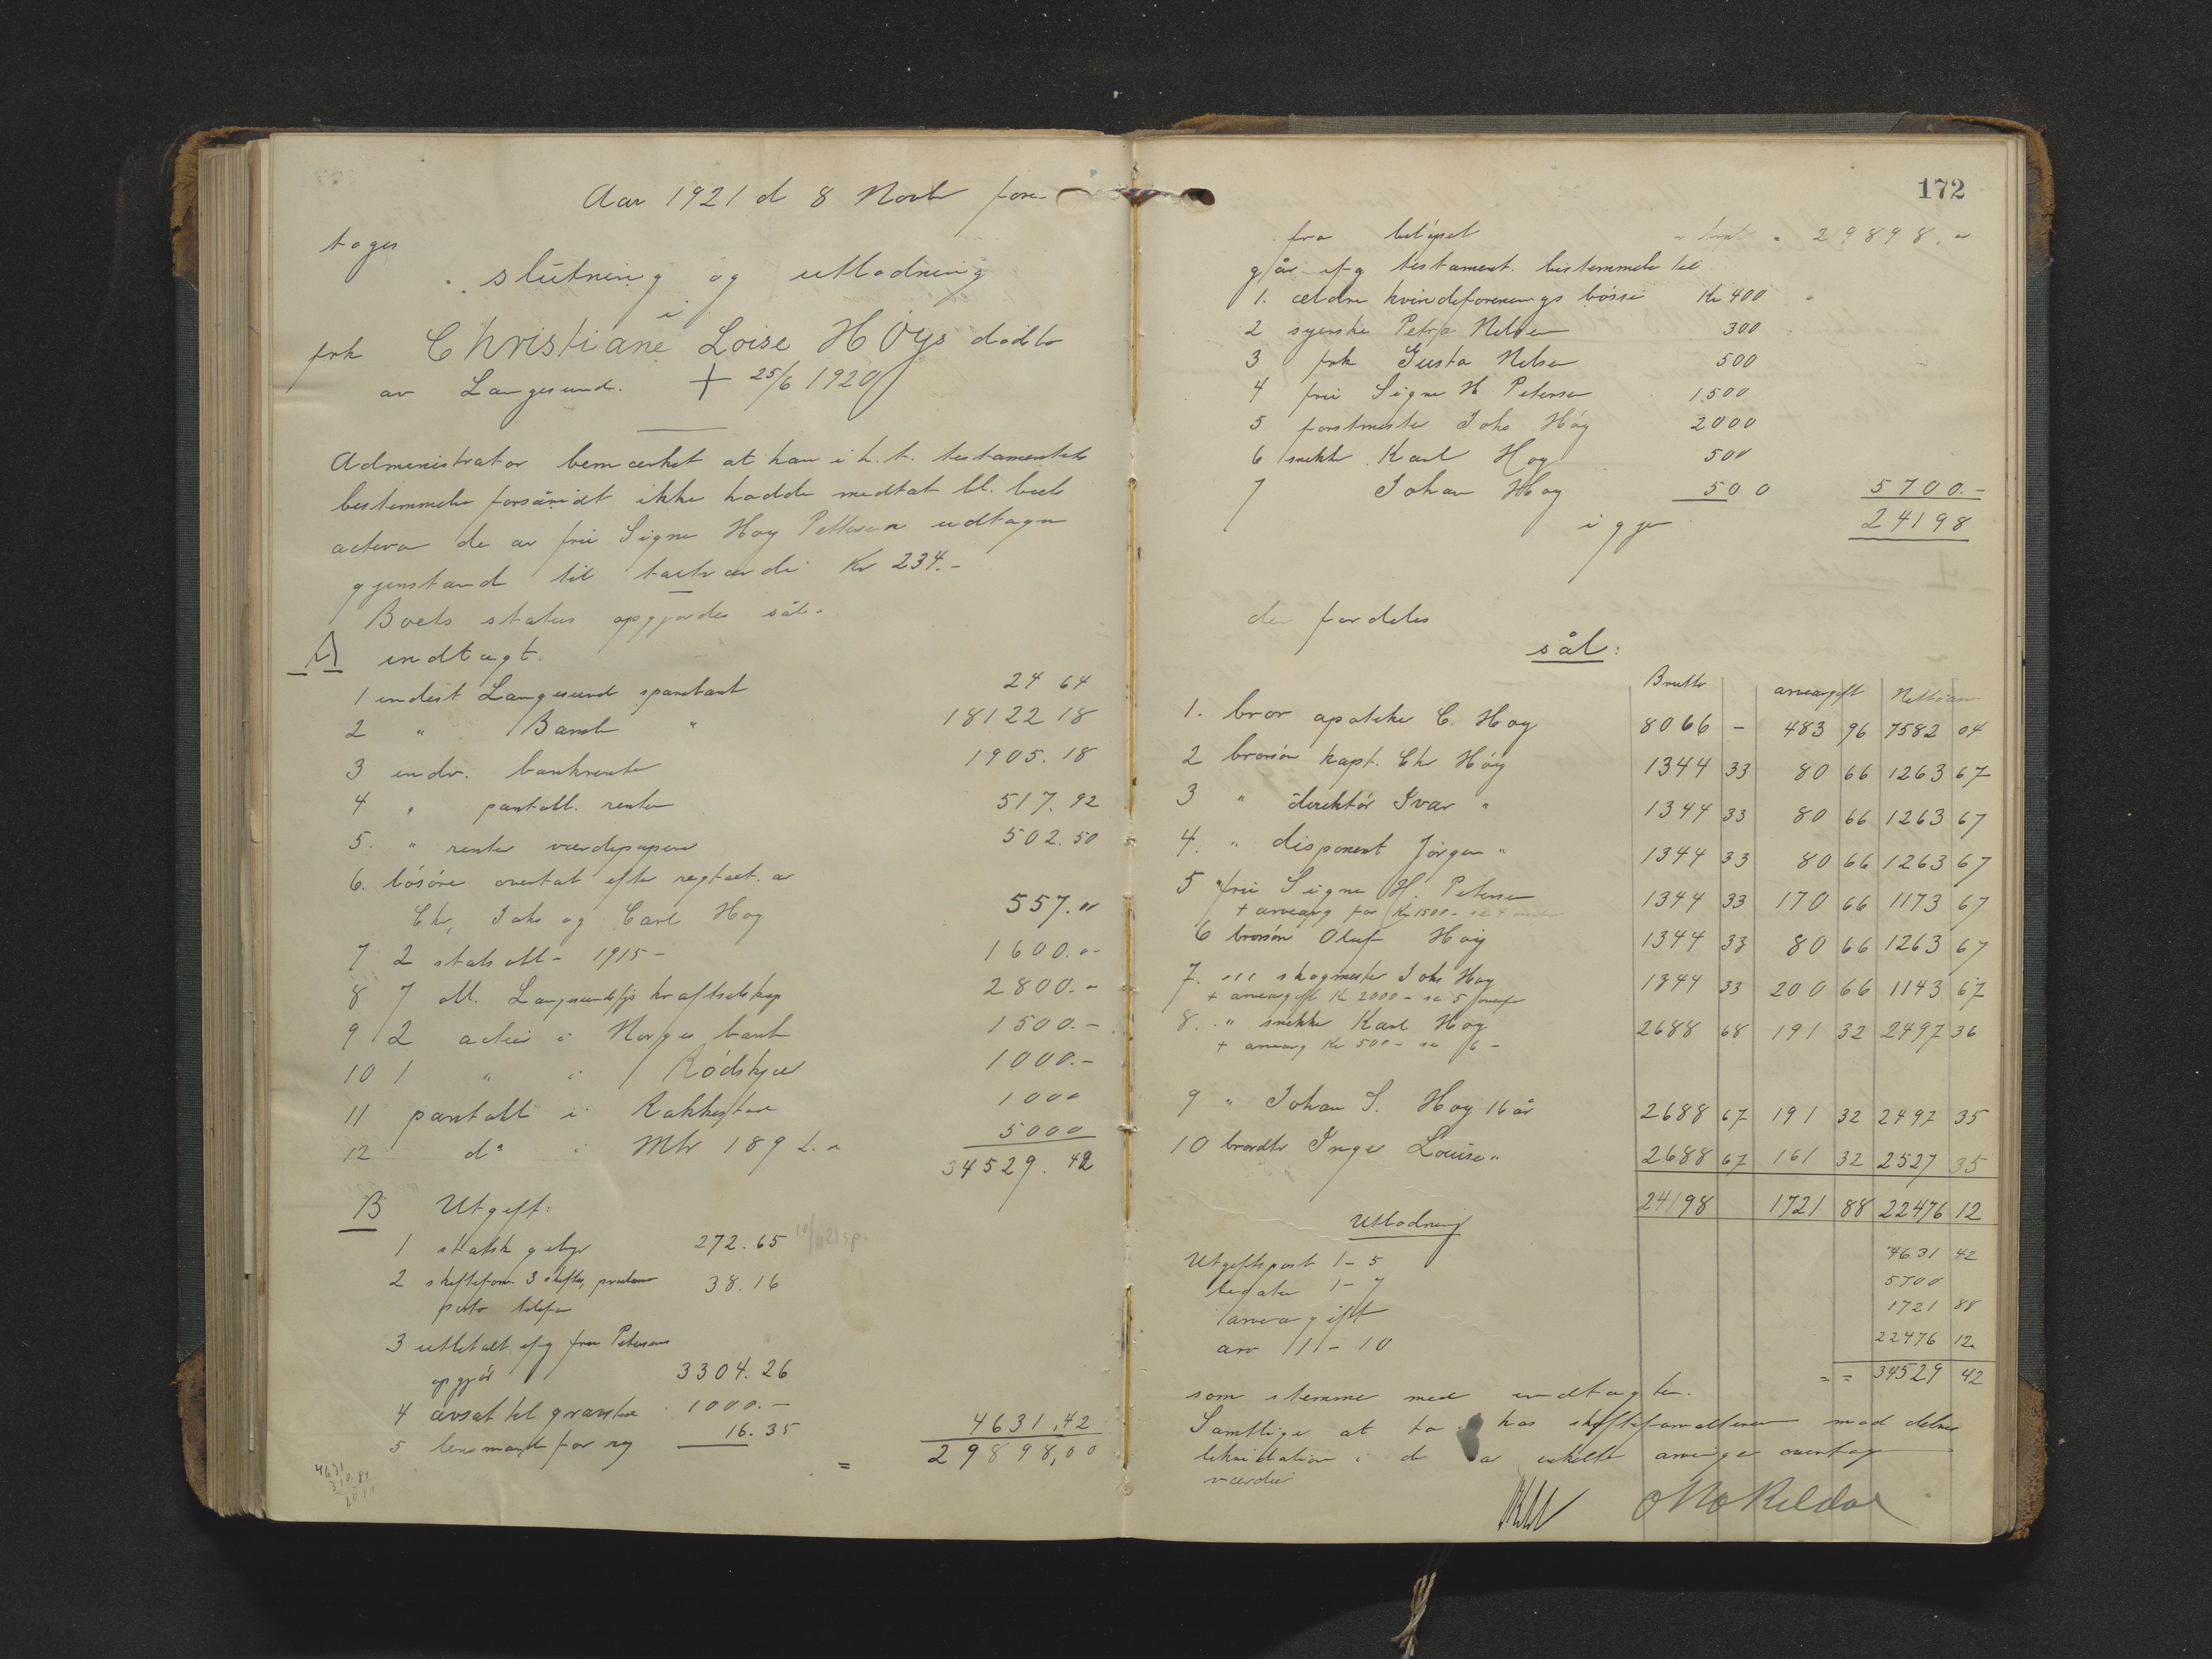 Aar 1921 d 8 Novbr fore-
tages
slutning og utlodning
i
frk Christiane Loise Höys dödsbo
av Langesund. + 25/6 1920
Administrator bemærket at han i h.t. testamentets
bestemmelse ikke hadde medtat bl. boets
activa de av fru Signe Høy Pettersen udtagne
gjenstand til takstværdi Kr 234.-
Boets status opgjordes sål.
A indtægt.
1 indest Langesund sparebank 24 64
2 " Bamle " 18122 18
3 indv. bankrente 1905.18
4 " pantobl. renter 517.92
5. " renter værdipapirer 502.50
6. lösöre overtat efter av
Chr, Johs og Carl Høy 557.00
7 2 statsobl - 1915 - 1600.00
8 7 obl. Langesundsfj kraftselskap 2800.-
9 2 actier i Norges bank 1500.-
10 1 " i Rödskjær 1000.-
11 pantobl i Rakkestad 1000
12 do i Mtr 189 5000
34529.42
B Utgift:
1 statsk gebyr 272.65 10/11 21
2 skifteforv 3 skifter,
porto telefon 38.16
3 utbetalt ifg fru Petersens
opgjör 3304.26
4 avsat til gravsted 1000.-
5 lensmand for reg 16.35 4631,42
= 29898,00
4631
172
fra belöpet 29898.
går ifg testament. bestemmelse til
1. ældre kvindeforenings bösse Kr 400
2 syerske Petra Nelsen 300
3 frk Gusta Nelsen 500
4 fru Signe H Petersen 1500
5 forstmester Johs Höy 2000
6 snekker Karl Hoy 500
7 Johan Höy 500 5700.-
igjen 24198
der fordeles
sål:
Brutto arveavgift Nettoarv
1. bror apoteker C. Hoy 8066 - 483 96 7582 04
2 brorsön kapt. Chr Höy 1344 33 80 66 1263 67
3 " direktör Ivar " 1344 33 80 66 1263 67
4. " disponent Jörgen " 1344 33 80 66 1263 67
5 fru Signe H. Petersen 1344 33 170 66 1173 67
+ arveavg for Kr 1500 - se 4
6 brorsön Oluf Höy 1344 33 80 66 1263 67
7. " skogmester Johs Hoy 1344 33 200 66 1143 67
+ arveavgift Kr 2000 - se 5
8. " snekker Karl Hoy 2688 68 191 32 2497 36
+ arveavg Kr 500 - se 6 -
9 " Johan S. Hoy 16 år 2688 67 191 32 2497 35
10 brordtr Inger Louise " 2688 67 161 32 2527 35
24198 1721 88 22476 12
Utlodning
Utgiftspost 1 - 5 4631 42
Legater 1 - 7 5700
arveavgift 1721 88
arv 1 - 10 22476 12
= = 34529 42
som stemmer med indtægten.
Samtlige at ta hos skifteforvalteren mod delvis
likvidation i de av enkelte arvinger overtagne
værdier
Otto Reldal